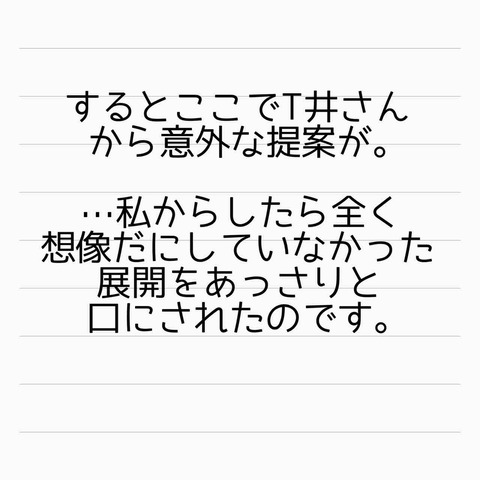 するとここでT井さん
から意外な提案が。
…私からしたら全く
想像だにしていなかった
展開をあっさりと
口にされたのです。